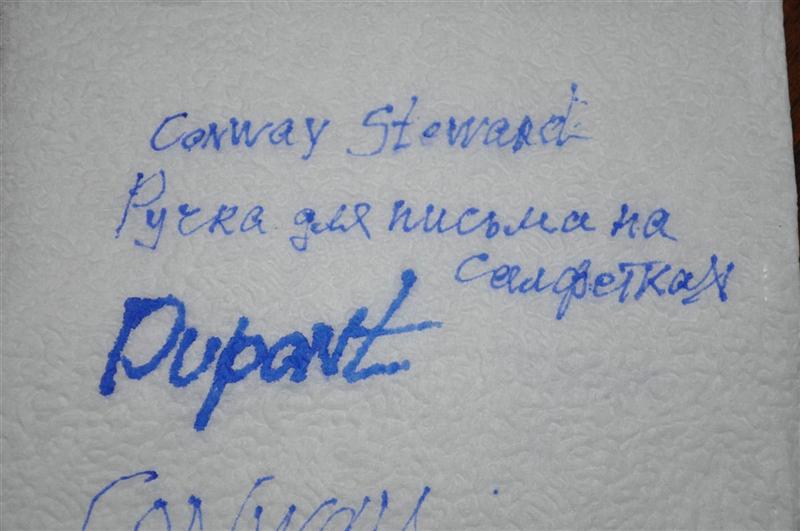 Conway Steward
Ручка для письма на
салфетках
Dupont
Conway